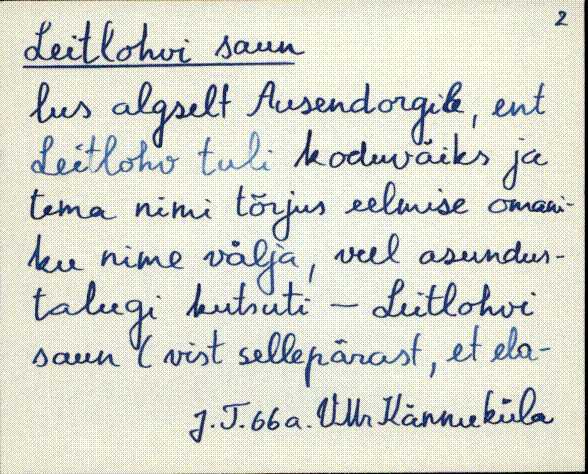 2
Leitlohvi saun
lus algselt Ausendorgile, ent
Leitlohv tuli koduväiks ja
tema nimi tõrjus eelmise omani-
ku nime välja, veel asundus-
talugi kutsuti — Leitlohvi
saun (vist sellepärast, et ela-
J.T. 66 a. VMr Kännuküla